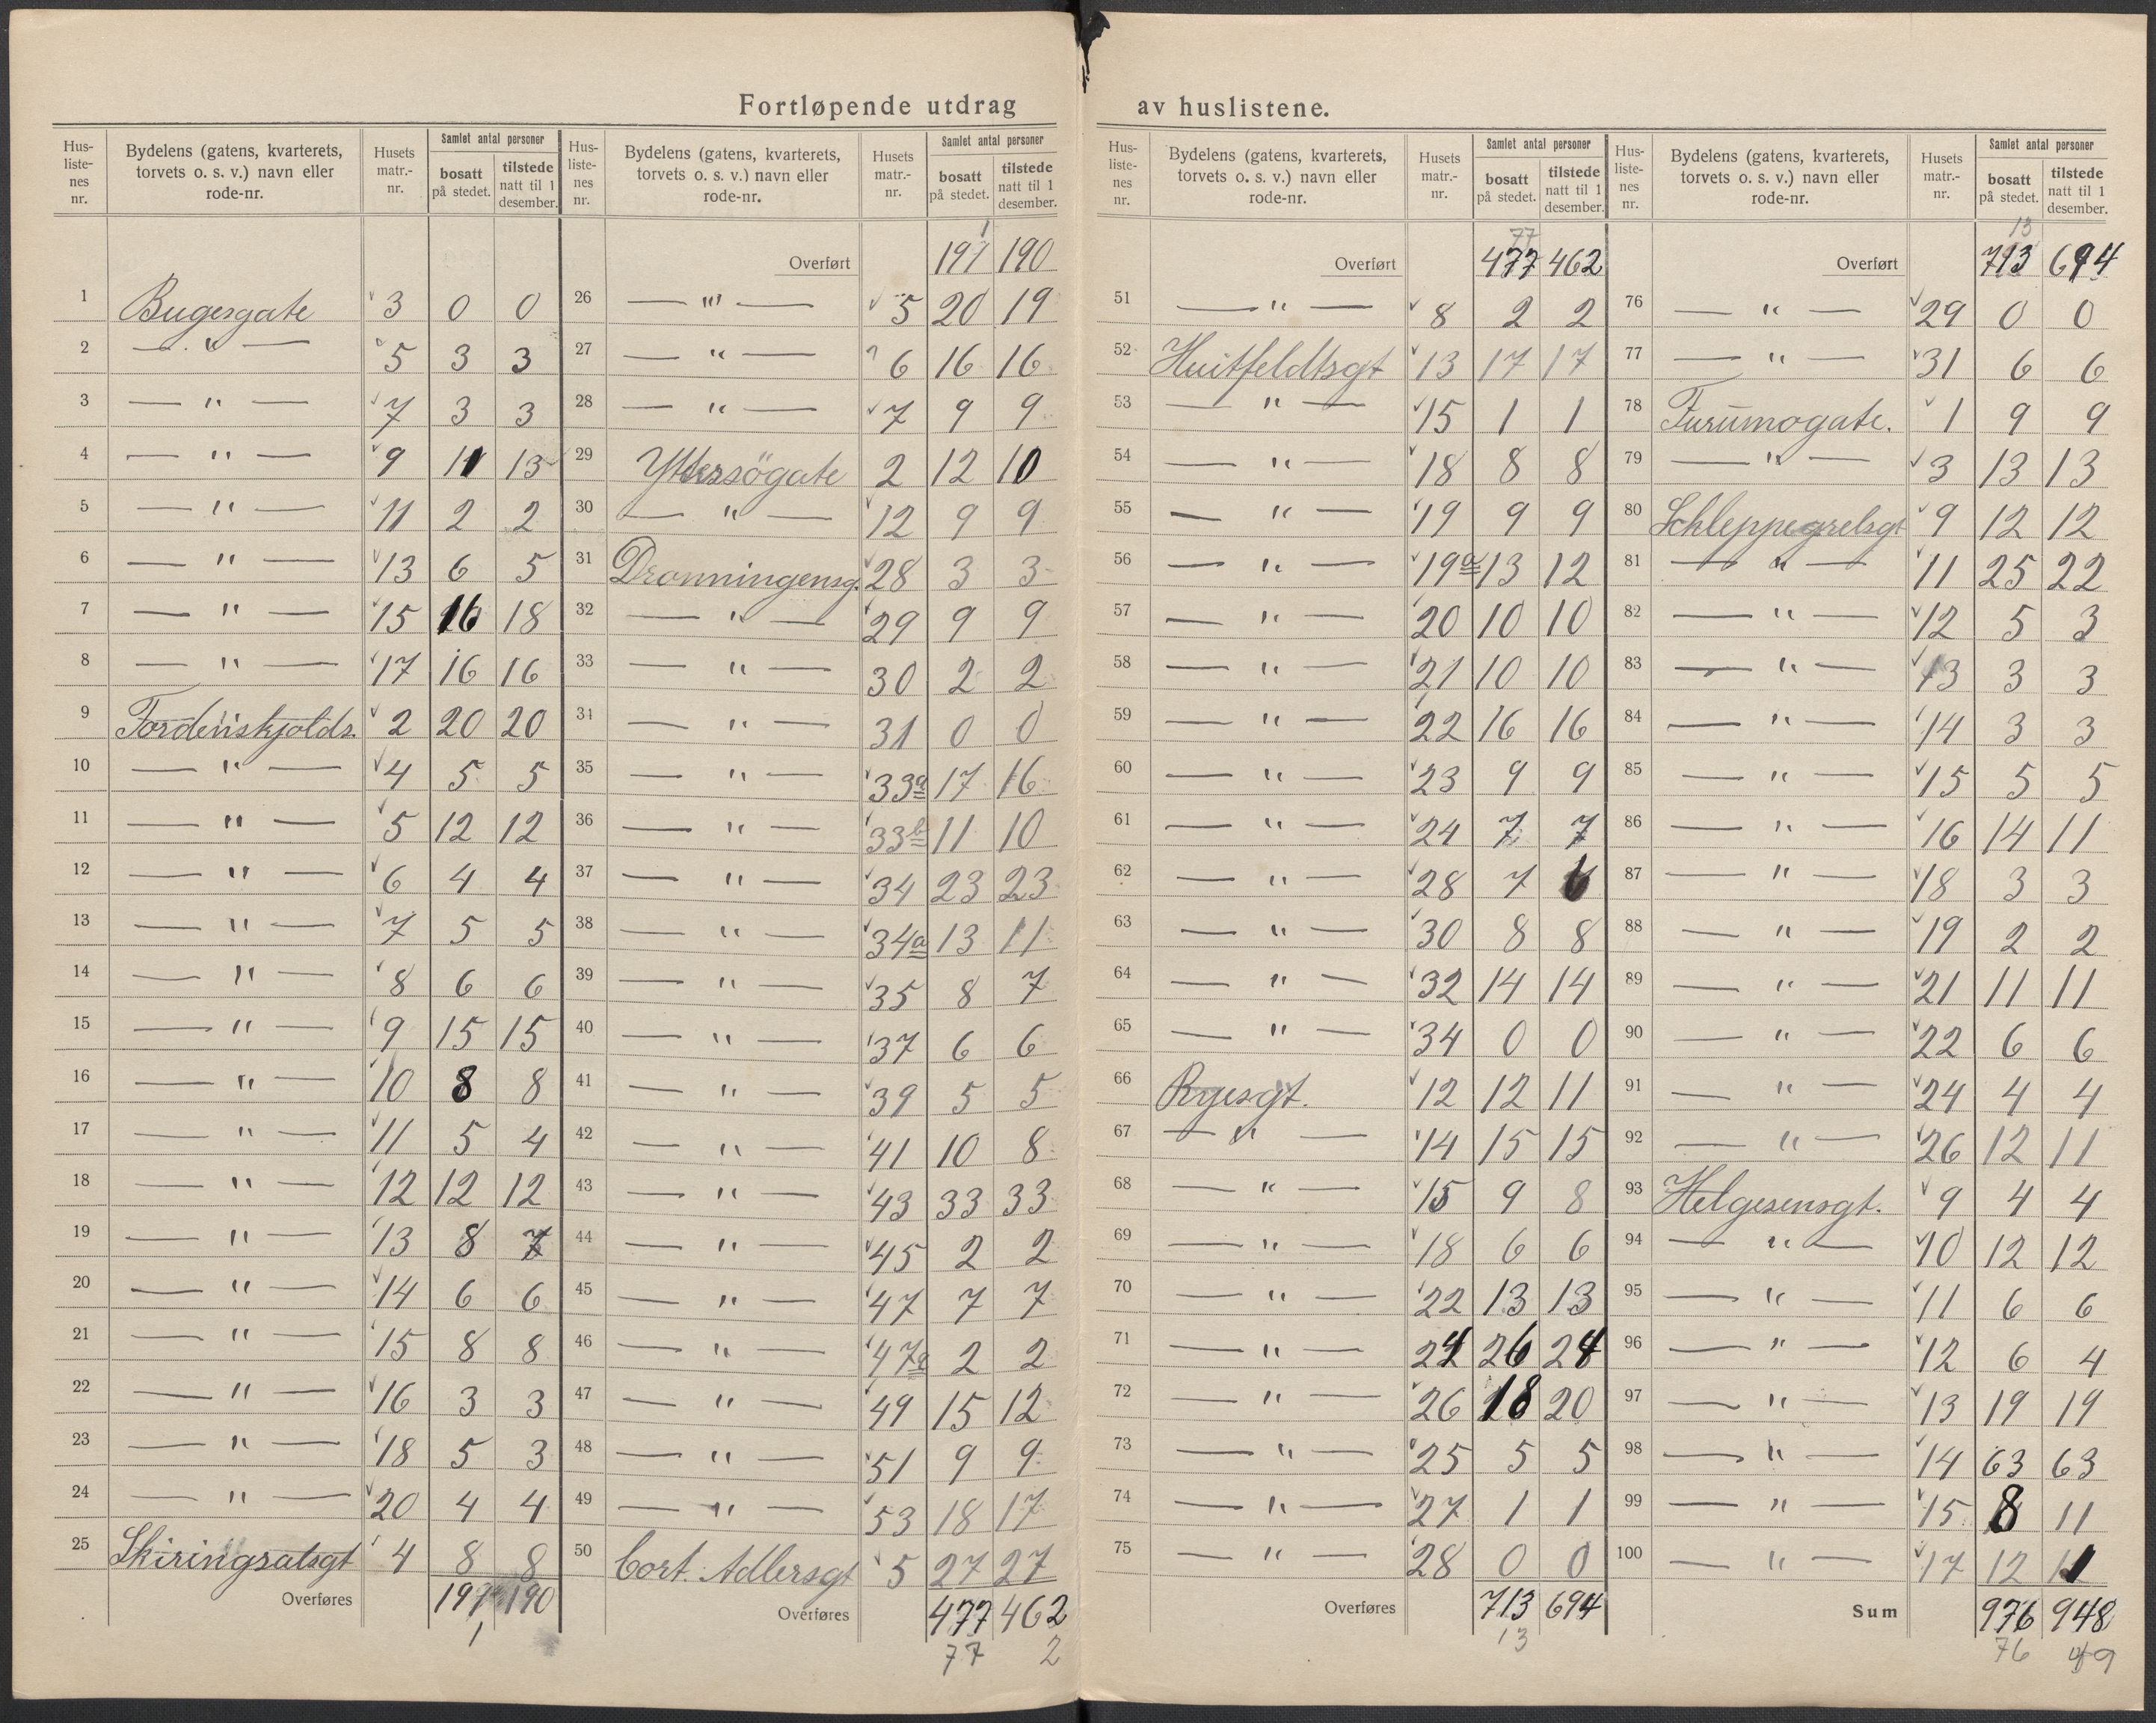 Fortløpende utdrag av huslistene.
Hus-liste-nes nr. Bydelens (gatens, kvarterets, torvets o. s. v.) navn eller rode-nr. Husets matr.-nr. Samlet antal personer bosatt på stedet. tilstede natt til 1 desember.
1 Bugesgate 3 0 0
2 — " — 5 3 3
3 — " — 7 3 3
4 — " — 9 11 13
5 — " — 11 2 2
6 — " — 13 6 5
7 — " — 15 16 18
8 — " — 17 16 16
9 Tordenskjolds. 2 20 20
10 — " — 4 5 5
11 — " — 5 12 12
12 — " — 6 4 4
13 — " — 7 5 5
14 — " — 8 6 6
15 — " — 9 15 15
16 — " — 10 8 8
17 — " — 11 5 4
18 — " — 12 12 12
19 — " — 13 8 7
20 — " — 14 6 6
21 — " — 15 8 8
22 — " — 16 3 3
23 — " — 18 5 3
24 — " — 20 4 4
25 Skiringsalsgt 4 8 8
Overføres 191 190
1
Hus-liste-nes nr. Bydelens (gatens, kvarterets, torvets o. s. v.) navn eller rode-nr. Husets matr.-nr. Samlet antal personer bosatt på stedet. tilstede natt til 1 desember.
1
Overført 191 190
26 — " — 5 20 19
27 — " — 6 16 16
28 — " — 7 9 9
29 Yttersögate 2 12 10
30 — " — 12 9 9
31 Dronningensg. 28 3 3
32 — " — 29 9 9
33 — " — 30 2 2
34 — " — 31 0 0
35 — " — 33a 17 16
36 — " — 33b 11 10
37 — " — 34 23 23
38 — " — 34a 13 11
39 — " — 35 8 7
40 — " — 37 6 6
41 — " — 39 5 5
42 — " — 41 10 8
43 — " — 43 33 33
44 — " — 45 2 2
45 — " — 47 7 7
46 — " — 47a 2 2
47 — " — 49 15 12
48 — " — 51 9 9
49 — " — 53 18 17
50 Cort. Adlersgt 5 27 27
Overføres 477 462
77 2
Hus-liste-nes nr. Bydelens (gatens, kvarterets, torvets o. s. v.) navn eller rode-nr. Husets matr.-nr. Samlet antal personer bosatt på stedet. tilstede natt til 1 desember.
77
Overført 477 462
51 — " — 8 2 2
52 Huitfeldtsgt 13 17 17
53 — " — 15 1 1
54 — " — 18 8 8
55 — " — 19 9 9
56 — " — 19a 13 12
57 — " — 20 10 10
58 — " — 21 10 10
59 — " — 22 16 16
60 — " — 23 9 9
61 — " — 24 7 7
62 — " — 28 7 6
63 — " — 30 8 8
64 — " — 32 14 14
65 — " — 34 0 0
66 Ryesgt. 12 12 11
67 — " — 14 15 15
68 — " — 15 9 8
69 — " — 18 6 6
70 — " — 22 13 13
71 — " — 24 26 24
72 — " — 26 18 20
73 — " — 25 5 5
74 — " — 27 1 1
75 — " — 28 0 0
Overføres 713 694
13
Hus-liste-nes nr. Bydelens (gatens, kvarterets, torvets o. s. v.) navn eller rode-nr. Husets matr.-nr. Samlet antal personer bosatt på stedet. tilstede natt til 1 desember.
13
Overført 713 694
76 — " — 29 0 0
77 — " — 31 6 6
78 Furumogate. 1 9 9
79 — " — 3 13 13
80 Schleppegrelsgt 9 12 12
81 — " — 11 25 22
82 — " — 12 5 3
83 — " — 13 3 3
84 — " — 14 3 3
85 — " — 15 5 5
86 — " — 16 14 11
87 — " — 18 3 3
88 — " — 19 2 2
89 — " — 21 11 11
90 — " — 22 6 6
91 — " — 24 4 4
92 — " — 26 12 11
93 Helgesensgt. 9 4 4
94 — " — 10 12 12
95 — " — 11 6 6
96 — " — 12 6 4
97 — " — 13 19 19
98 — " — 14 63 63
99 — " — 15 8 11
100 — " — 17 12 11
Sum 976 948
76